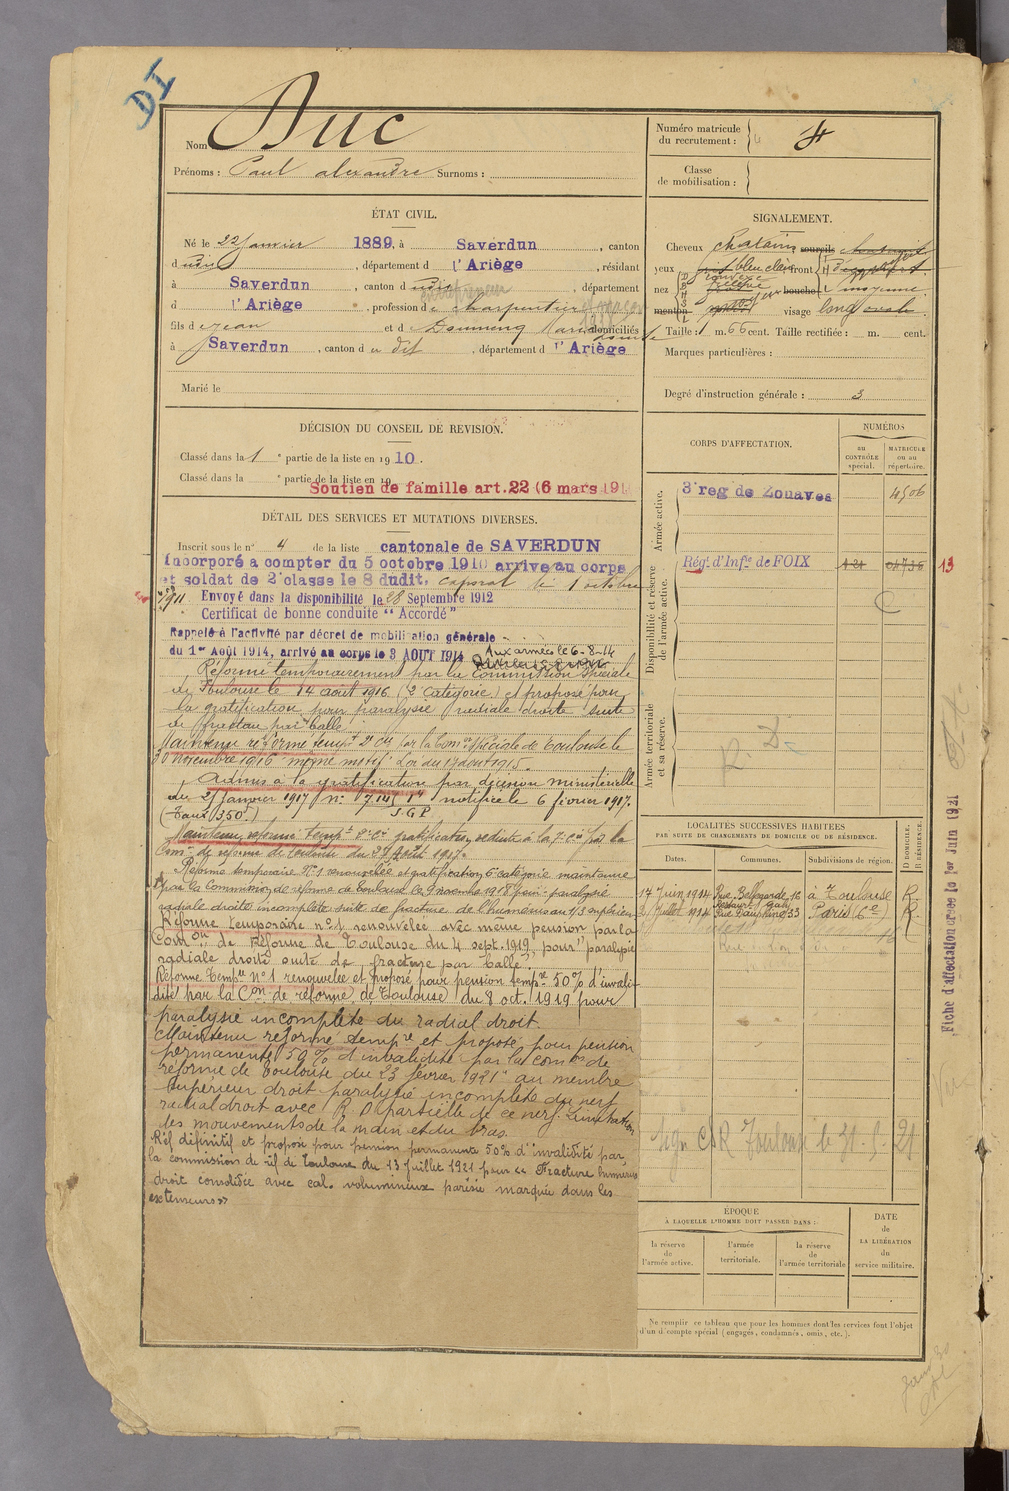 DI
Nom Duc
Prénoms : Paul alexandre Surnoms :
Numéro matricule du recrutement : 4
Classe de mobilisation :
ÉTAT CIVIL.
Né le 22 Janvier 1889, à Saverdun, canton
d udit, département d l'Ariège, résidant
à Saverdun, canton d udit, département
d l'Ariège, profession d e charpentier
fils d e Jean et d domiciliés
à Saverdun, canton d u dit, département d l'Ariège
Marié le
SIGNALEMENT.
Cheveux chatain sourcils
yeux bleu clair front
nez bouche moyenne
menton visage long ovale
Taille : 1 m. 66 cent. Taille rectifiée : m. cent.
Marques particulières :
Degré d'instruction générale : 3
DÉCISION DU CONSEIL DE REVISION.
Classé dans la 1 e partie de la liste en 1910.
Classé dans la e partie de la liste en 19
Soutien de famille art. 22 (6 mars 191
DÉTAIL DES SERVICES ET MUTATIONS DIVERSES.
Inscrit sous le n° 4 de la liste cantonale de SAVERDUN
Incorporé a compter du 5 octobre 1910 arrivé au corps
et soldat de 2e classe le 8 dudit, caporal le 1 octobre
1911. Envoyé dans la disponibilité le 28 Septembre 1912
Certificat de bonne conduite "Accordé"
Rappelé à l'activité par décret de mobilisation générale
du 1er Août 1914, arrivé au corps le 3 AOUT 1914 Aux armées le 6-8-14
Réformé temporairement par la Commission Spéciale
de Toulouse le 14 aout 1916 (2e catégorie) et proposé pour
la gratification pour paralysie radiale droite suite
de fracture par balle.
Maintenu réformé tempt 2e cie par la Comon spéciale de Toulouse le
30 novembre 1916 même motif Loi du 17 aout 1915.
Admis à la gratification par décision ministérielle
du 21 Janvier 1917 no 7141 notifiée le 6 février 1917.
(Taux 350f) S.G.P
Maintenu réformé tempt 2e cie gratification réduite à la 7e cie par la
Comon de réforme de Toulouse du 27 Août 1917.
Réforme temporaire No 1 renouvelée et gratification 6e catégorie maintenue
par la Commission de réforme de Toulouse le 9 novembre 1918 pour: paralysie
radiale droite incomplète suite de fracture de l'humérus au 1/3 supérieur
Réforme temporaire no 1 renouvelée avec même pension par la
Comon de Réforme de Toulouse du 4 sept. 1919, pour "paralysie
radiale droite suite de fracture par balle".
Réforme tempre No 1 renouvelée et proposé pour pension tempre 50% d'invali-
dité par la Con de réforme de Toulouse du 8 oct. 1919 pour
paralysie incomplète du radial droit.
Maintenu réformé tempre et proposé pour pension
permanente 50% d'invalidité par la comon de
réforme de Toulouse du 23 février 1921 au membre
supérieur droit paralysie incomplète du nerf
radial droit avec R D partielle de ce nerf. Limitation
des mouvements de la main et du bras.
Réf définitif et proposé pour pension permanente 50% d'invalidité par
la commission de réf de Toulouse du 13 Juillet 1921 pour "Fracture humérus
droit consolidée avec cal. volumineux parésie marquée dans les
extenseurs"
CORPS D'AFFECTATION.
NUMÉROS
au CONTRÔLE spécial.
MATRICULE ou au répertoire.
Armée active.
3e reg de Zouaves 4506
Disponibilité et réserve de l'armée active.
Régt d'Infie de FOIX 13
C
Armée territoriale et sa réserve.
R. D
LOCALITÉS SUCCESSIVES HABITÉES
PAR SUITE DE CHANGEMENTS DE DOMICILE OU DE RÉSIDENCE.
Dates. Communes. Subdivisions de région. D DOMICILE. R RÉSIDENCE.
17 Juin 1914 Rue Bellegarde 12 à Toulouse R.
2 Juillet 1914 Rue Dauphine 33 Paris (6e) R.
C S R Toulouse le 31-5-21
ÉPOQUE
À LAQUELLE L'HOMME DOIT PASSER DANS :
la réserve de l'armée active.
l'armée territoriale.
la réserve de l'armée territoriale
DATE de LA LIBÉRATION du service militaire.
Ne remplir ce tableau que pour les hommes dont les services font l'objet
d'un d'compte spécial (engagés, condamnés, omis, etc.).
Fiche d'affectation créée le 1er Juin 1921